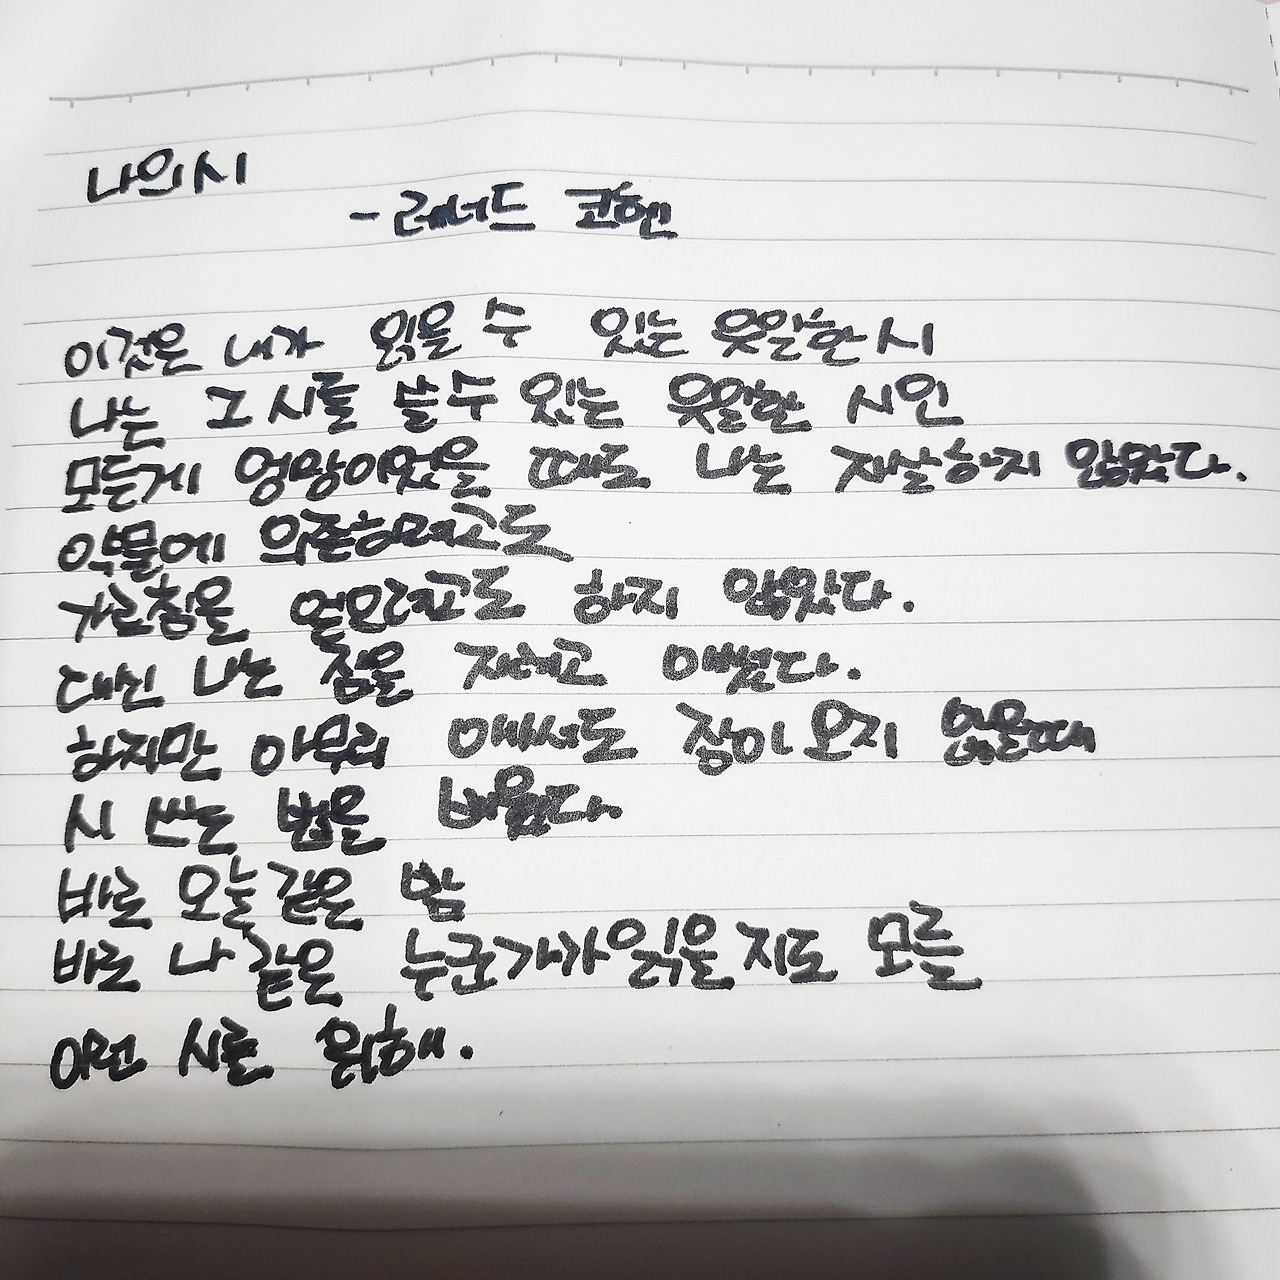 나의 시
- 레너드 코헨
이것은 내가 읽을 수 있는 유일한 시
나는 그 시를 쓸 수 있는 유일한 시인
모든게 엉망이었을 때도 나는 자살하지 않았다.
약물에 의존하려고도
가르침을 얻으려고도 하지 않았다.
대신 나는 잠을 자려고 애썼다.
하지만 아무리 애써도 잠이 오지 않을때
시 쓰는 법을 배웠다.
바로 오늘 같은 밤
바로 나 같은 누군가가 읽을지도 모를
이런 시를 위해.